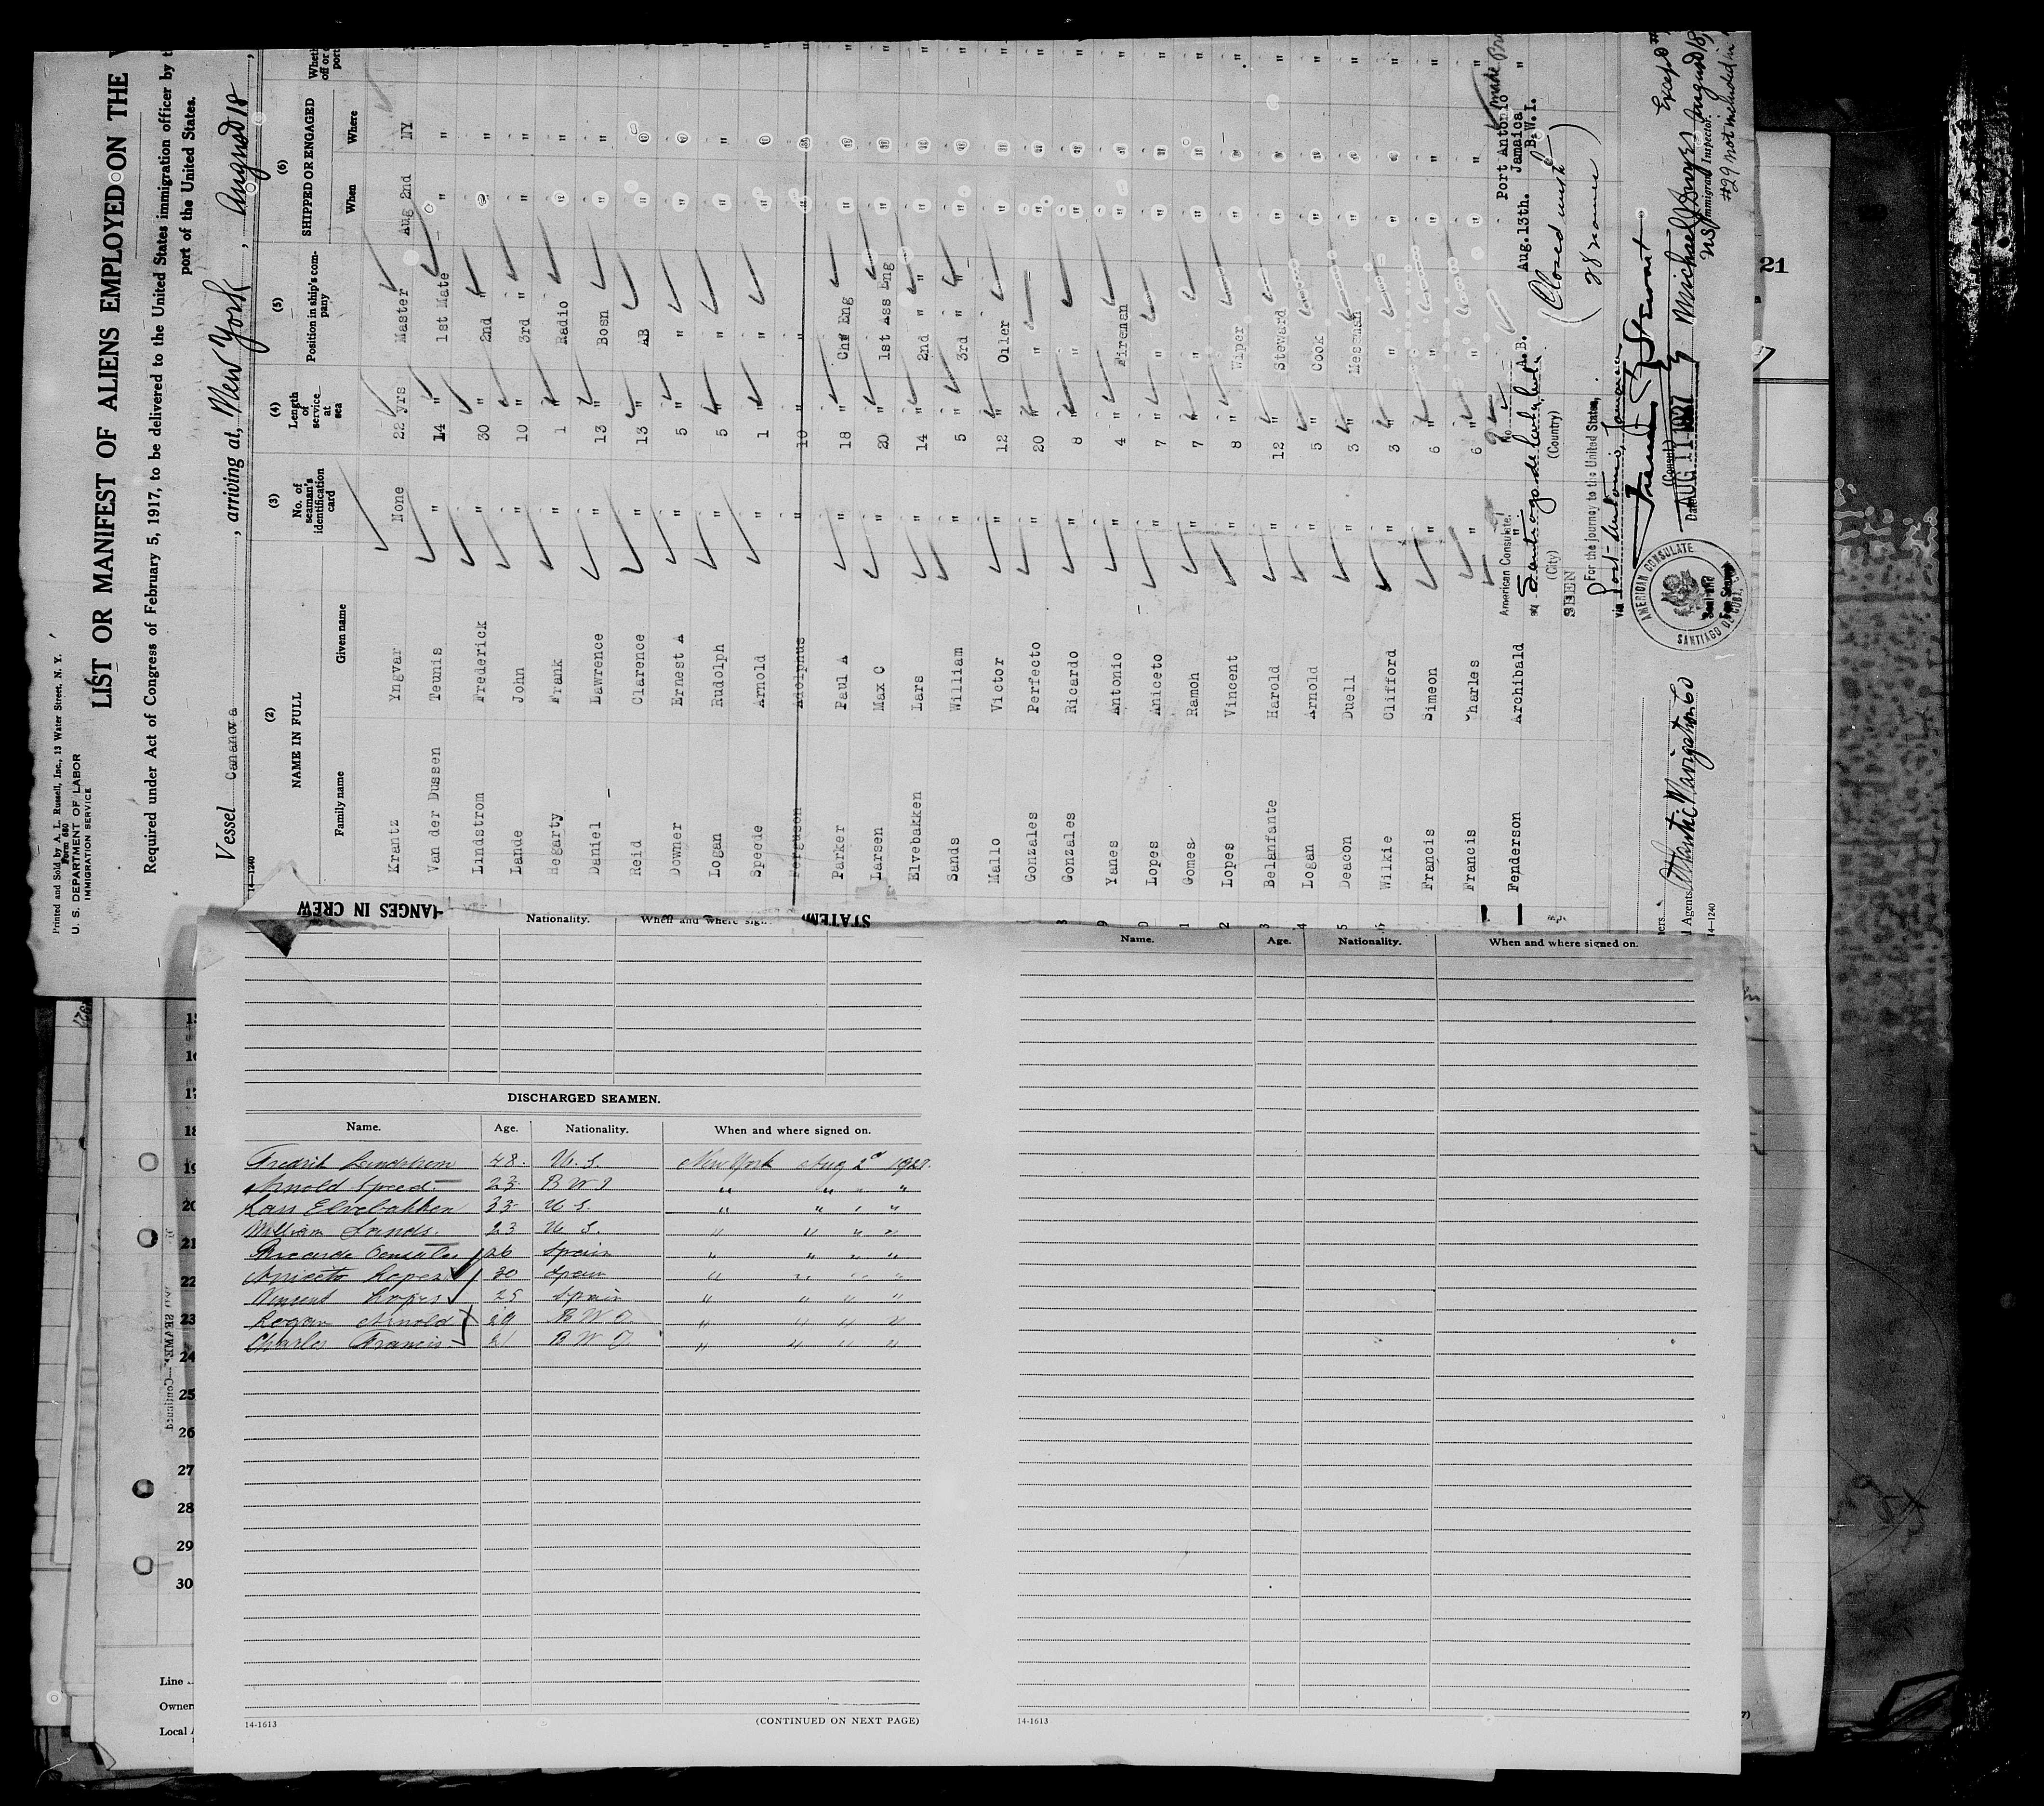 Printed and Sold by A. L. Russell, Inc., 13 Water Street, N. Y.
Form 680
U. S. DEPARTMENT OF LABOR
IMMIGRATION SERVICE
LIST OR MANIFEST OF ALIENS EMPLOYED ON THE
Required under Act of Congress of February 5, 1917, to be delivered to the United States immigration officer by
port of the United States.
Vessel Cananova, arriving at, New York, August 18,
14-1240
(2) (3) (4) (5) (6)
NAME IN FULL No. of seaman's identification card Length of service at sea Position in ship's company SHIPPED OR ENGAGED
Family name Given name When Where
Krantz Yngvar None 22 yrs Master Aug 2nd NY
Van der Dussen Teunis " 14 " 1st Mate " "
Lindstrom Frederick " 30 " 2nd " " "
Lande John " 10 " 3rd " " "
Hegarty Frank " 1 " Radio " "
Daniel Lawrence " 13 " Bosn " "
Reid Clarence " 13 " AB " "
Downer Ernest A " 5 " " " "
Logan Rudolph " 5 " " " "
Speede Arnold " 1 " " " "
Ferguson Adolphus " 10 " " " "
Parker Paul A " 18 " Chf Eng " "
Larsen Max C " 20 " 1st Ass Eng " "
Elvebakken Lars " 14 " 2nd " " "
Sands William " 5 " 3rd " " "
Mallo Victor " 12 " Oiler " "
Gonzales Perfecto " 20 " " " "
Gonzales Ricardo " 8 " " " "
Yanes Antonio " 4 " Fireman " "
Lopes Aniceto " 7 " " " "
Gomes Ramon " 7 " " " "
Lopes Vincent " 8 " Wiper " "
Belanfante Harold " 12 " Steward " "
Logan Arnold " 5 " Cook " "
Deacon Duell " 3 " Messman " "
Wilkie Clifford " 3 " " " "
Francis Simeon " 6 " " " "
Francis Charles " 6 " " " "
Fenderson Archibald " A.B. Aug.13th. Port Antonio Jamaica B.W.I.
American Consulate
at Santiago de Cuba, Cuba.
(City) (Country)
SEEN
For the journey to the United States,
via Port-Antonio, Jamaica
(Closed with
28 names)
(Consul)
Date AUG 11 1927
AMERICAN CONSULATE
SANTIAGO DE CUBA
Immigrant Inspector.
#29 not included in
Agents Atlantic Navigation Co
14-1240
CHANGES IN CREW
Nationality. When and where sig
Name. Age. Nationality. When and where signed on.
DISCHARGED SEAMEN.
Name. Age. Nationality. When and where signed on.
Fredrik Lundstrom 48. U. S. New York Aug 2nd 1927.
Arnold Speed 23 B W I " " " "
Lars Elvebakken 33 U S. " " " "
William Sands. 23 U S. " " " "
Ricardo Gonzales 26 Spain " " " "
Aniceto Lopez 30 Spain " " " "
Vincent Lopes 25 Spain " " " "
Logan Arnold 29 B W I. " " " "
Charles Francis 21 B W I " " " "
14-1613 (CONTINUED ON NEXT PAGE)
14-1613
21
15
16
17
18
19
20
21
22
23
24
25
26
27
28
29
30
Line
Owner
Local